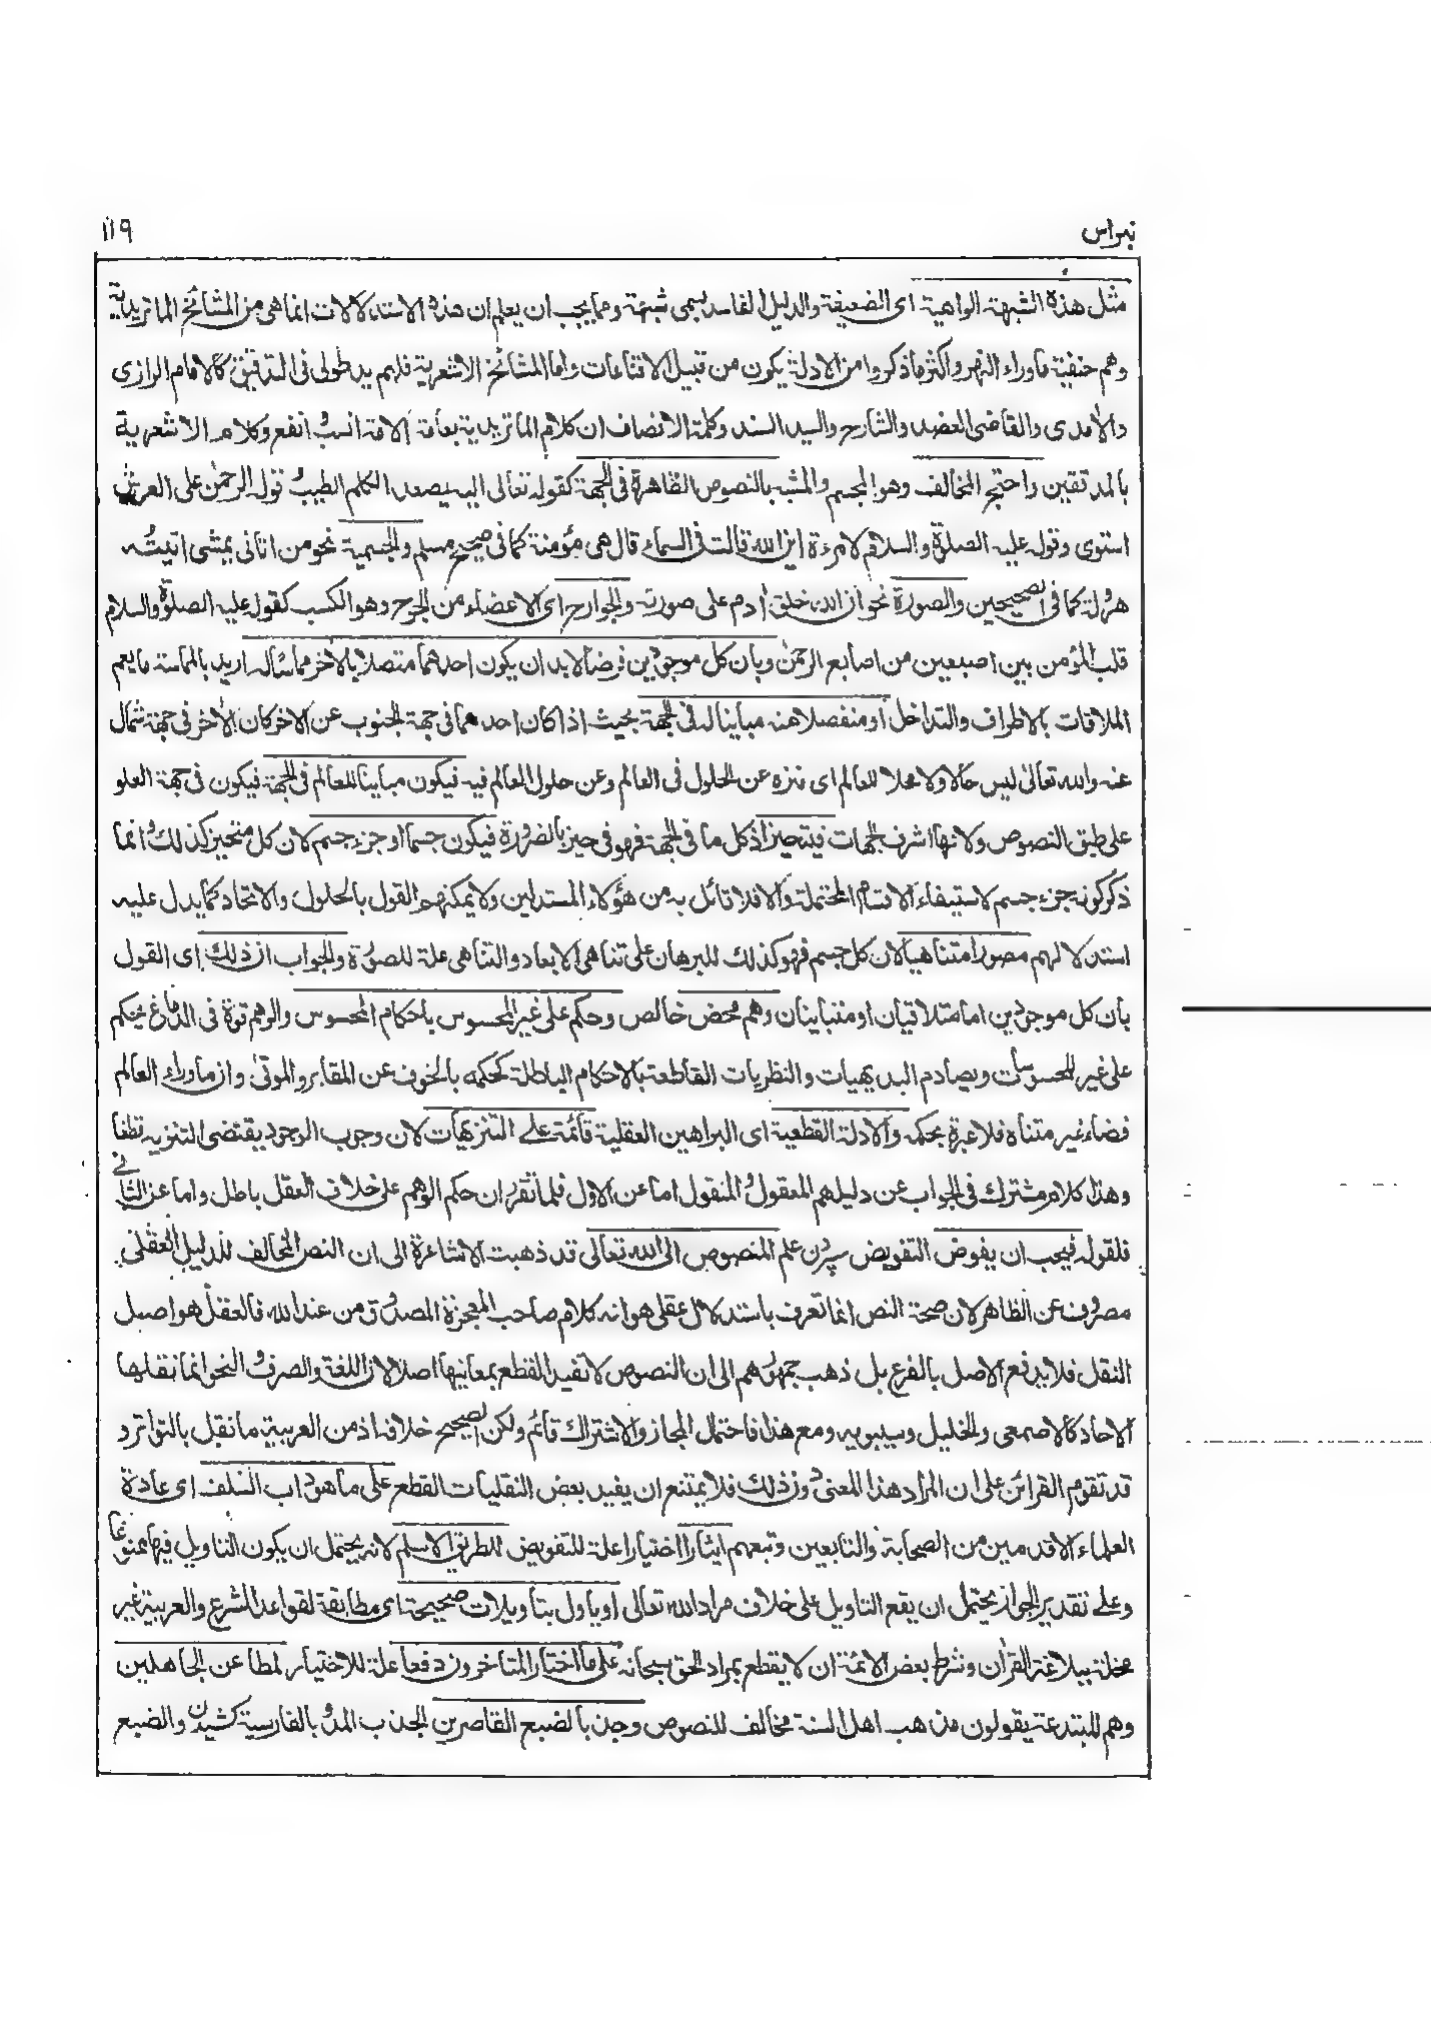 نبراس
١١٩
مثل هذه الشبهة الواهية اى الضعيفة والدليل الفاسد يسمى شبهة ومما يجب ان يعلم ان هذه الاستدلالات انما هى من المشائخ الماتريدية
وهم حنفية ماوراء النهر واكثر ما ذكروا من الادلة يكون من قبيل الاقناعات واما المشائخ الاشعرية فلهم يد طولى فى التدقيق كالامام الرازى
والآمدى والقاضى العضد والشارح والسيد السند وكلمة الانصاف ان كلام الماتريدية بعامة الامة انسب وانفع وكلام الاشعرية
بالمدققين واحتج المخالف وهو المجسم والمشبه بالنصوص الظاهرة فى الجهة كقوله تعالى اليه يصعد الكلم الطيب وقوله الرحمن على العرش
استوى وقوله عليه الصلوة والسلام لامرءة اين الله فقالت فى السماء قال هى مؤمنة كما فى صحيح مسلم والجسمية نحو من اتانى يمشى اتيته
هرولة كما فى الصحيحين والصورة نحو ان الله خلق ادم على صورته والجوارح اى الاعضاء من الجرح وهو الكسب كقوله عليه الصلوة والسلام
قلب المؤمن بين اصبعين من اصابع الرحمن وبان كل موجودين فرضا لا بد ان يكون احدهما متصلا بالآخر مماسا له اريد بالمماسة ما يعم
الملاقات بالاطراف والتداخل او منفصلا عنه مباينا له فى الجهة بحيث اذا كان احدهما فى جهة الجنوب عن الاخر كان الآخر فى جهة شمال
عنه والله تعالى ليس حالا ولا محلا للعالم اى منزه عن الحلول فى العالم وعن حلول العالم فيه فيكون مباينا للعالم فى الجهة فيكون فى جهة العلو
على طبق النصوص ولانها اشرف الجهات فيتحيز اذ كل ما فى الجهة فهو فى حيز بالضرورة فيكون جسما او جزء جسم لان كل متحيز كذلك وانما
ذكر كونه جزء جسم لاستيفاء الاقسام المحتملة والا فلا قائل به من هؤلاء المستدلين ولا يمكنهم القول بالحلول والاتحاد كما يدل عليه
استدلالهم مصورا متناهيا لان كل جسم فهو كذلك للبرهان على تناهى الابعاد والتناهى علة للصورة والجواب ان ذلك اى القول
بان كل موجودين اما متلاقيان او متباينان وهم محض خالص وحكم على غير المحسوس باحكام المحسوس والوهم قوة فى الدماغ يحكم
على غير المحسوسات ويصادم البديهيات والنظريات القاطعة بالاحكام الباطلة كحكمه بالخوف عن المقابر والموتى وان ماوراء العالم
فضاء غير متناه فلا عبرة بحكمه والادلة القطعية اى البراهين العقلية قائمة على التنزيهات لان وجوب الوجود يقتضى التنزيه قطعا
وهذا كلام مشترك فى الجواب عن دليلهم المعقول والمنقول اما عن الاول فلما تقرر ان حكم الوهم على خلاف العقل باطل واما عن الثانى
فلقوله فيجب ان يفوض التفويض سپردن علم المنصوص الى الله تعالى قد ذهبت الاشاعرة الى ان النص المخالف للدليل العقلى
مصروف عن الظاهر لان صحة النص انما تعرف باستدلال عقلى هو انه كلام صاحب المعجزة المصدوق من عند الله فالعقل هو اصل
النقل فلا يرفع الاصل بالفرع بل ذهب جمهورهم الى ان النصوص لا تفيد القطع بمعانيها اصلا لان اللغة والصرف والنحو انما نقلها
الآحاد كالاصمعى والخليل وسيبويه ومع هذا فاحتمال المجاز والاشتراك قائم ولكن الصحيح خلافه اذ من العربية ما نقل بالتواتر و
قد تقوم القرائن على ان المراد هذا المعنى دون ذلك فلا يمتنع ان يفيد بعض النقليات القطع على ما هو داب السلف اى عادة
العلماء الاقدمين من الصحابة والتابعين وتبعهم ايثارا اختيارا علة للتفويض للطريق الاسلم لانه يحتمل ان يكون التاويل فيها ممنوعا
وعلى تقدير الجواز يحتمل ان يقع التاويل على خلاف مراد الله تعالى او ياول بتاويلات صحيحة اى مطابقة لقواعد الشرع والعربية غير
مخلة ببلاغة القرآن وشرط بعض الائمة ان لا يقطع بمراد الحق سبحانه على ما اختاره المتاخرون دفعا علة للاختيار لمطاعن الجاهلين
وهم المبتدعة يقولون مذهب اهل السنة مخالف للنصوص وجذبا لضبع القاصرين الجذب المد وبالفارسية كشيدن والضبع